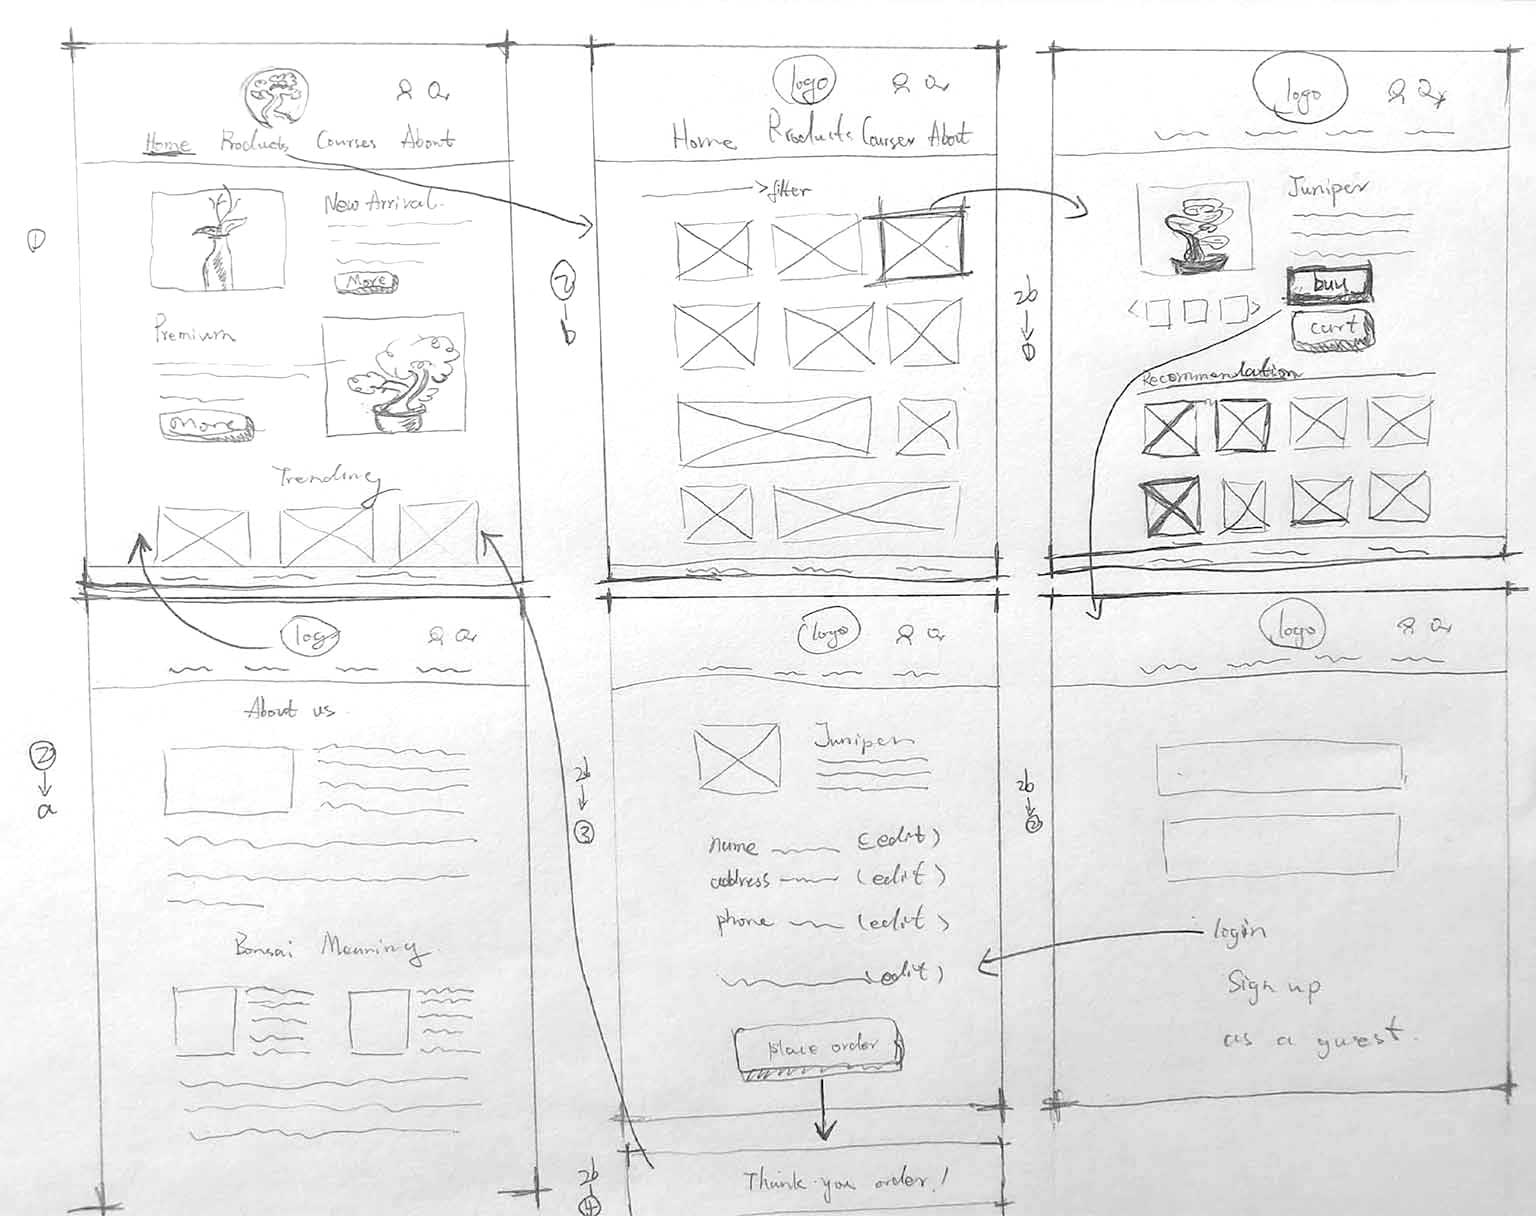 Home Products Courses About
①
New Arrival.
More
Premium
More
Trending
logo
Home Products Courses About
filter
②
b
logo
2b
①
Juniper
buy
cart
Recommendation
logo
②
a
About us
Bonsai Meaning
logo
2b
③
Juniper
name (edit)
address (edit)
phone (edit)
(edit)
place order
2b
④
Thank you order!
logo
2b
②
login
Sign up
as a guest.